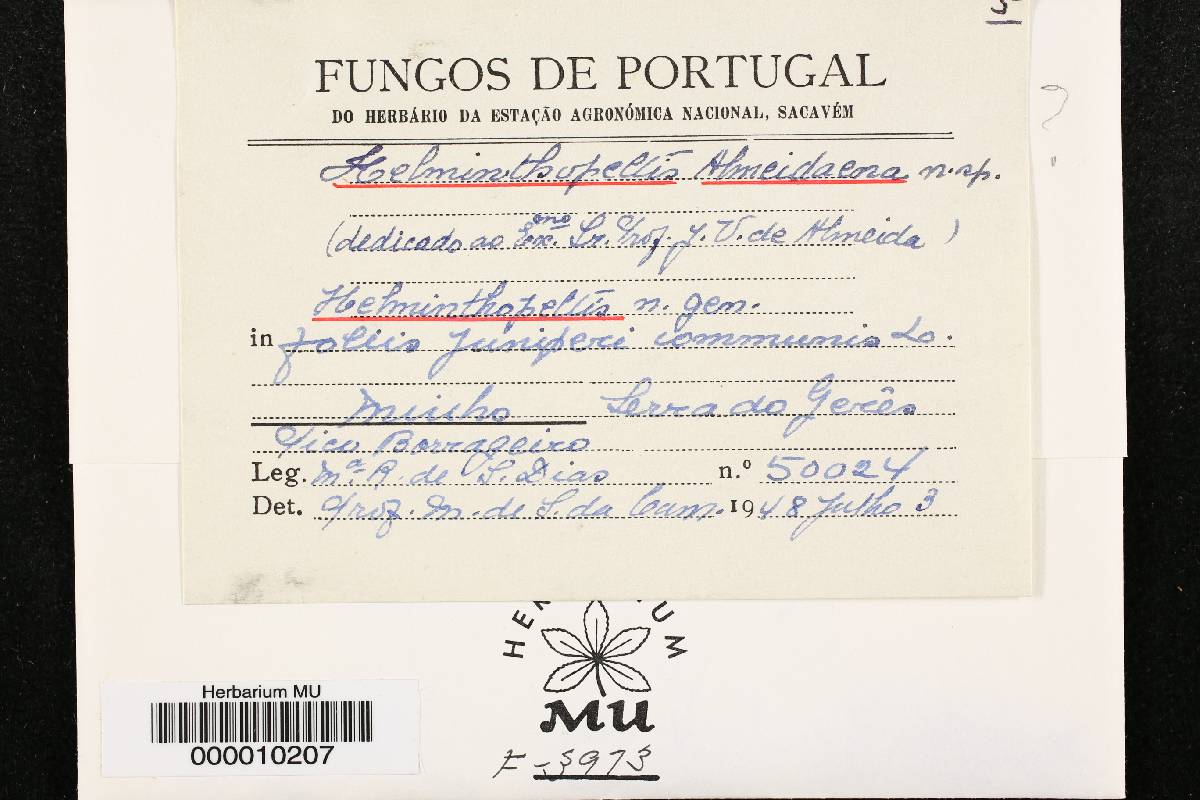 5
FUNGOS DE PORTUGAL
DO HERBÁRIO DA ESTAÇÃO AGRONÓMICA NACIONAL, SACAVÉM
?
Helminthopeltis Almeidaena n. sp.
(dedicado ao Exmo. Sr. Prof. J. V. de Almeida)
Helminthopeltis n. gen.
in foliis Juniperi communis L.
Minho Serra do Gerês
Pico Borrageiro
Leg. Mª. R. de S. Dias n.º 50024
Det. Prof. M. de S. da Cam. 1948 Julho 3
HERBARIUM
MU
Herbarium MU
000010207
F-3973